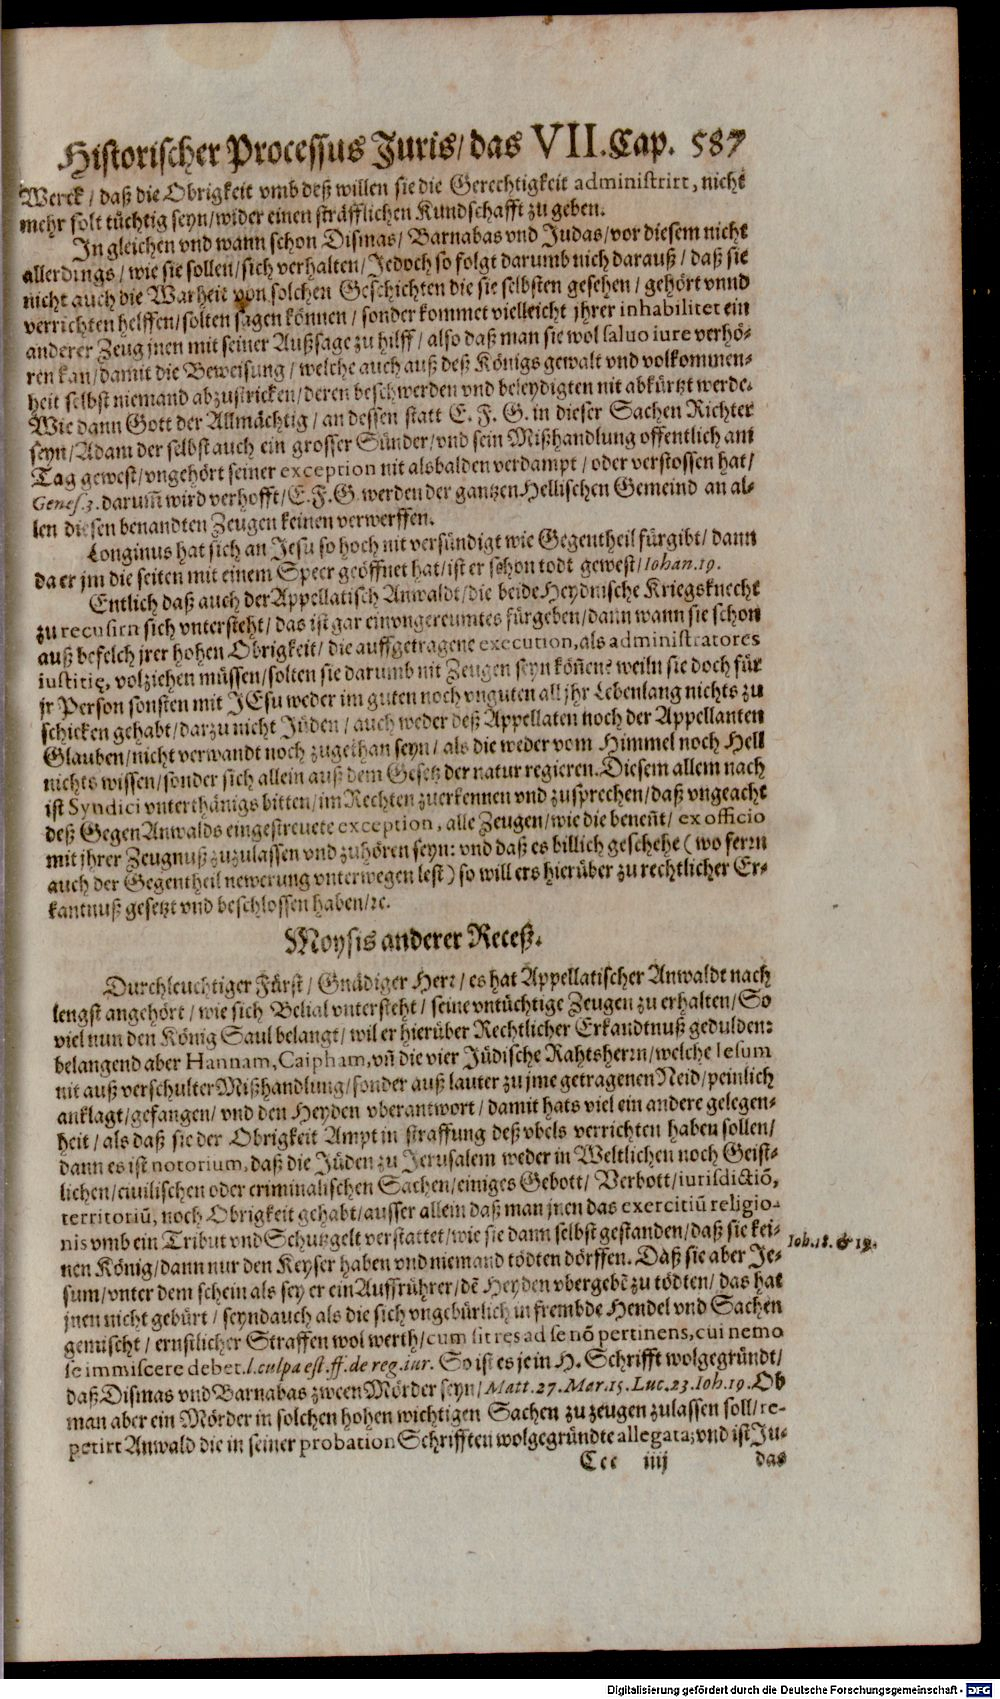 Historischer Processus Juris/ das VII. Cap. 587
Werck / daß die Obrigkeit vmb deß willen sie die Gerechtigkeit administrirt, nicht
mehr solt tüchtig seyn/ wider einen sträfflichen Kundschafft zu geben.
In gleichen vnd wann schon Dismas/ Barnabas vnd Judas/ vor diesem nicht
allerdings / wie sie sollen/ sich verhalten/ Jedoch so folgt darumb nich darauß / daß sie
nicht auch die Warheit von solchen Geschichten die sie selbsten gesehen / gehört vnnd
verrichten helffen/ solten sagen können / sonder kommet vielleicht jhrer inhabilitet ein
anderer Zeug jnen mit seiner Außsage zu hilff / also daß man sie wol saluo iure verhö-
ren kan/ damit die Beweisung / welche auch auß deß Königs gewalt vnd volkommen-
heit selbst niemand abzustricken/ deren beschwerden vnd beleydigten nit abkürtzt werde.
Wie dann Gott der Allmächtig / an dessen statt E. F. G. in dieser Sachen Richter
seyn/ Adam der selbst auch ein grosser Sünder/ vnd sein Mißhandlung offentlich am
Tag gewest/ vngehört seiner exception nit alsbalden verdampt / oder verstossen hat/
Genes. 3. darum̃ wird verhofft/ E. F. G. werden der gantzen Hellischen Gemeind an al-
len diesen benandten Zeugen keinen verwerffen.
Longinus hat sich an Jesu so hoch nit versündigt wie Gegentheil fürgibt/ dann
da er jm die seiten mit einem Speer geöffnet hat/ ist er schon todt gewest/ Iohan. 19.
Entlich daß auch der Appellatisch Anwaldt/ die beide Heydnische Kriegsknecht
zu recusirn sich vntersteht/ das ist gar ein vngereumtes fürgeben/ dann wann sie schon
auß befelch jrer hohen Obrigkeit/ die auffgetragene execution, als administratores
iustitię, volziehen müssen/ solten sie darumb nit Zeugen seyn kön̄en? weiln sie doch für
jr Person sonsten mit JEsu weder im guten noch vnguten all jhr Lebenlang nichts zu
schicken gehabt/ darzu nicht Jüden / auch weder deß Appellaten noch der Appellanten
Glauben/ nicht verwandt noch zugethan seyn/ als die weder vom Himmel noch Hell
nichts wissen/ sonder sich allein auß dem Gesetz der natur regieren. Diesem allem nach
ist Syndici vnterthänigs bitten/ im Rechten zuerkennen vnd zusprechen/ daß vngeacht
deß Gegen Anwalds eingestreuete exception, alle Zeugen/ wie die benen̄t/ ex officio
mit jhrer Zeugnuß zuzulassen vnd zuhören seyn: vnd daß es billich geschehe ( wo ferrn
auch der Gegentheil newerung vnterwegen lest ) so will ers hierüber zu rechtlicher Er-
kantnuß gesetzt vnd beschlossen haben/ ꝛc.
Moysis anderer Receß.
Durchleuchtiger Fürst / Gnädiger Herr / es hat Appellatischer Anwaldt nach
lengst angehört / wie sich Belial vntersteht / seine vntüchtige Zeugen zu erhalten/ So
viel nun den König Saul belangt/ wil er hierüber Rechtlicher Erkandtnuß gedulden:
belangend aber Hannam, Caipham, vn̄ die vier Jüdische Rahtsherrn/ welche Iesum
nit auß verschulter Mißhandlung/ sonder auß lauter zu jme getragenen Neid/ peinlich
anklagt/ gefangen/ vnd den Heyden vberantwort / damit hats viel ein andere gelegen-
heit / als daß sie der Obrigkeit Ampt in straffung deß vbels verrichten haben sollen/
dann es ist notorium, daß die Jüden zu Jerusalem weder in Weltlichen noch Geist-
lichen/ civilischen oder criminalischen Sachen/ einiges Gebott/ Verbott/ iurisdictiō,
territoriū, noch Obrigkeit gehabt/ ausser allein daß man jnen das exercitiū religio-
nis vmb ein Tribut vnd Schutzgelt verstattet/ wie sie dann selbst gestanden/ daß sie kei-
Ioh. 18. & 19.
nen König/ dann nur den Keyser haben vnd niemand tödten dörffen. Daß sie aber Je-
sum/ vnter dem schein als sey er ein Auffrührer/ dē Heyden vbergebē zu tödten/ das hat
jnen nicht gebürt / seynd auch als die sich vngebürlich in frembde Hendel vnd Sachen
gemischt / ernstlicher Straffen wol werth/ cum sit res ad se nō pertinens, cui nemo
se immiscere debet. l. culpa est. ff. de reg. iur. So ist es je in H. Schrifft wolgegründt/
daß Dismas vnd Barnabas zween Mörder seyn/ Matt. 27. Mar. 15. Luc. 23. Ioh. 19. Ob
man aber ein Mörder in solchen hohen wichtigen Sachen zu zeugen zulassen soll/ re-
petirt Anwald die in seiner probation Schrifften wolgegründte allegata; vnd ist Ju-
Ccc iiij das
Digitalisierung gefördert durch die Deutsche Forschungsgemeinschaft - DFG